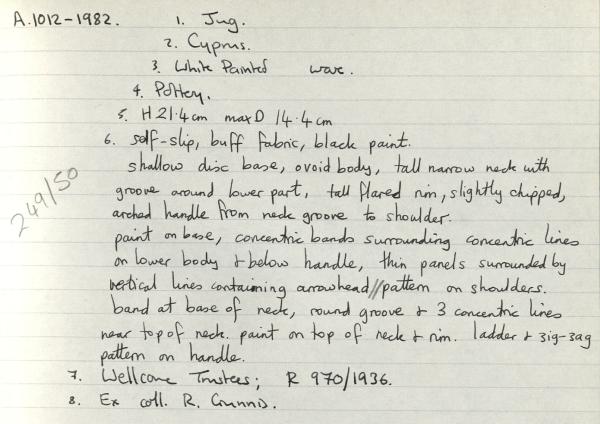 A.1012-1982. 1. Jug.
2. Cyprus.
3. White Painted ware.
4. Pottery.
5. H 21.4 cm max D 14.4 cm
6. self-slip, buff fabric, black paint.
shallow disc base, ovoid body, tall narrow neck with
groove around lower part, tall flared rim, slightly chipped,
arched handle from neck groove to shoulder.
249/50
paint on base, concentric bands surrounding concentric lines
on lower body & below handle, thin panels surrounded by
vertical lines containing arrowhead // pattern on shoulders.
band at base of neck, round groove & 3 concentric lines
near top of neck. paint on top of neck & rim. ladder & zig-zag
pattern on handle.
7. Wellcome Trustees; R 970/1936.
8. Ex coll. R. Gunnis.